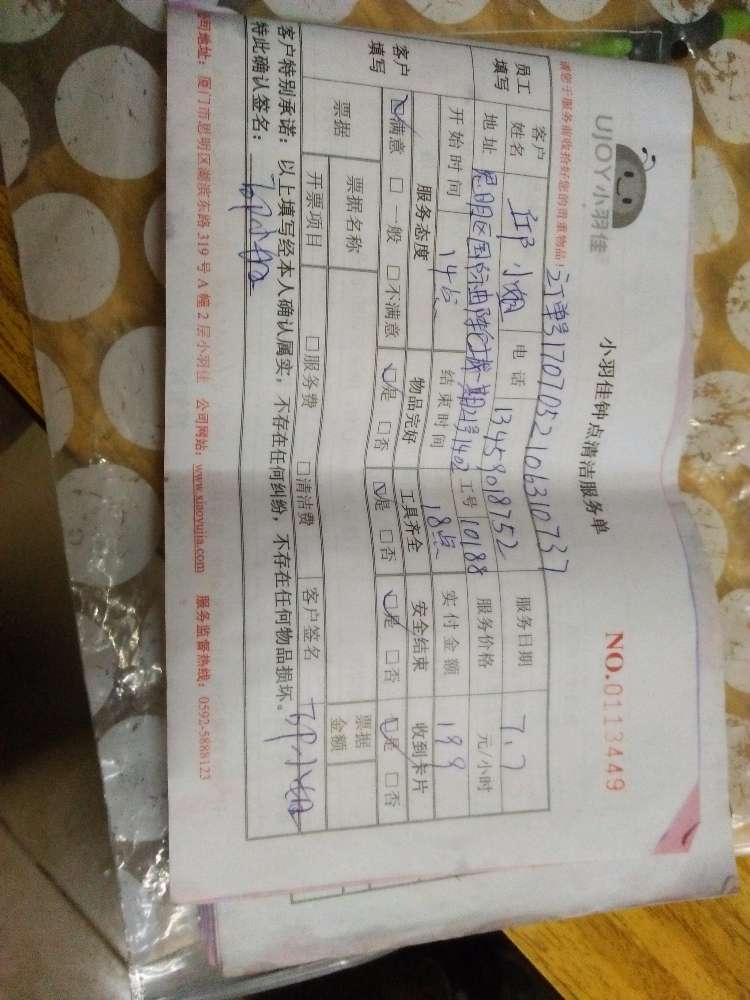 UJOY小羽佳
小羽佳钟点清洁服务单
NO.0113449
请您于服务前收拾好您的贵重物品！
订单号1707052106310737
员工填写 客户姓名 小姐 电话 13459018752 服务日期 7.7
地址 思明区国 一期 21号1402 工号 10188 服务价格 元/小时
开始时间 14点 结束时间 18点 实付金额 199
客户填写 服务态度 物品完好 工具齐全 安全结束 收到卡片
☑满意 □一般 □不满意 ☑是 □否 ☑是 □否 ☑是 □否 ☑是 □否
票据 票据名称 票据金额
开票项目 □服务费 □清洁费 客户签名 小姐
客户特别承诺：以上填写经本人确认属实，不存在任何纠纷，不存在任何物品损坏。
特此确认签名： 小姐
司地址：厦门市思明区湖滨东路 319 号 A 幢 2 层小羽佳 公司网站：www.xiaoyujia.com 服务监督热线：0592-5888123